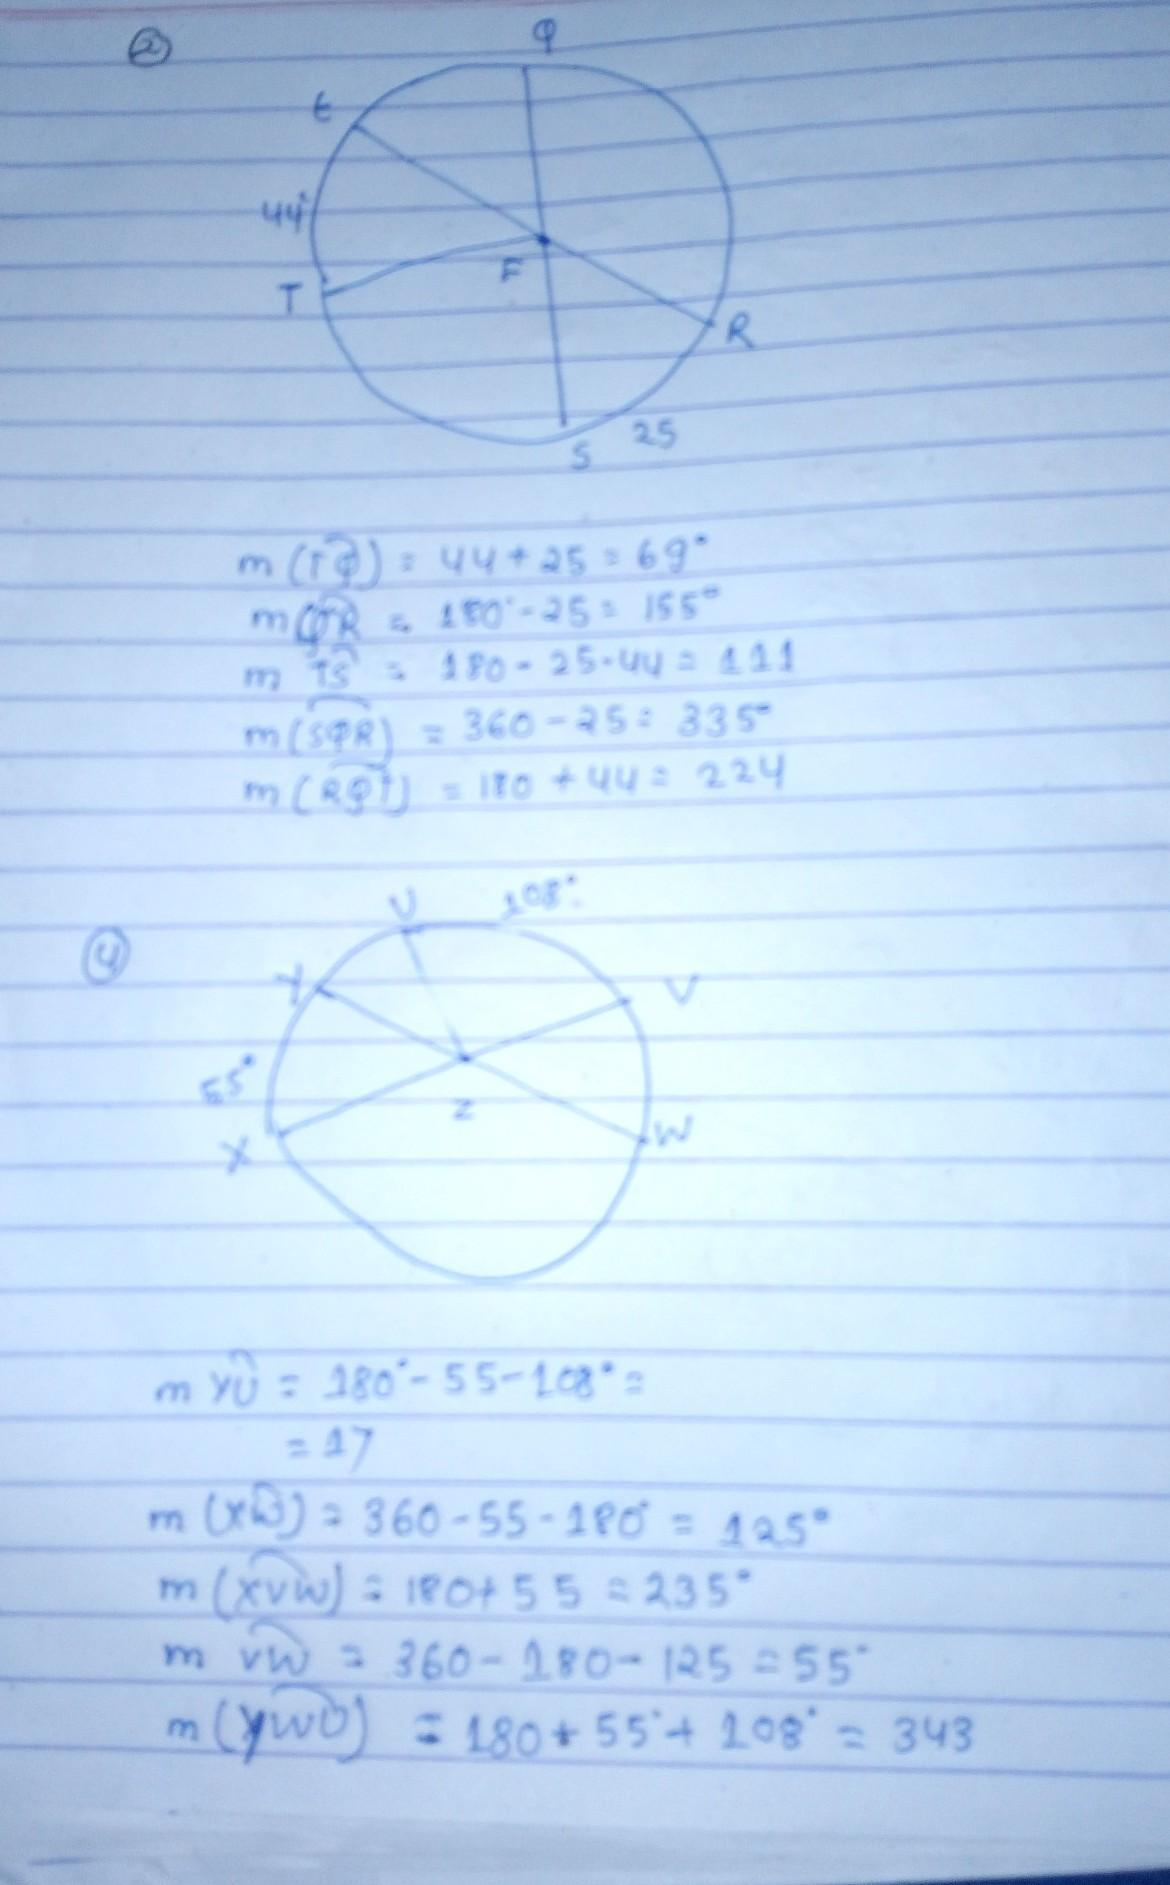 2
Q
E
44°
F
T
R
25
S
m (TQ) = 44 + 25 = 69°
m QR = 180° - 25 = 155°
m TS = 180 - 25 - 44 = 111
m (SQR) = 360 - 25 = 335°
m (RQT) = 180 + 44 = 224
4
U 108°
Y V
55°
Z
X W
m YU = 180° - 55 - 108° =
= 17
m (XW) = 360 - 55 - 180° = 125°
m (XVW) = 180 + 55 = 235°
m VW = 360 - 180 - 125 = 55°
m (YWU) = 180 + 55° + 108° = 343